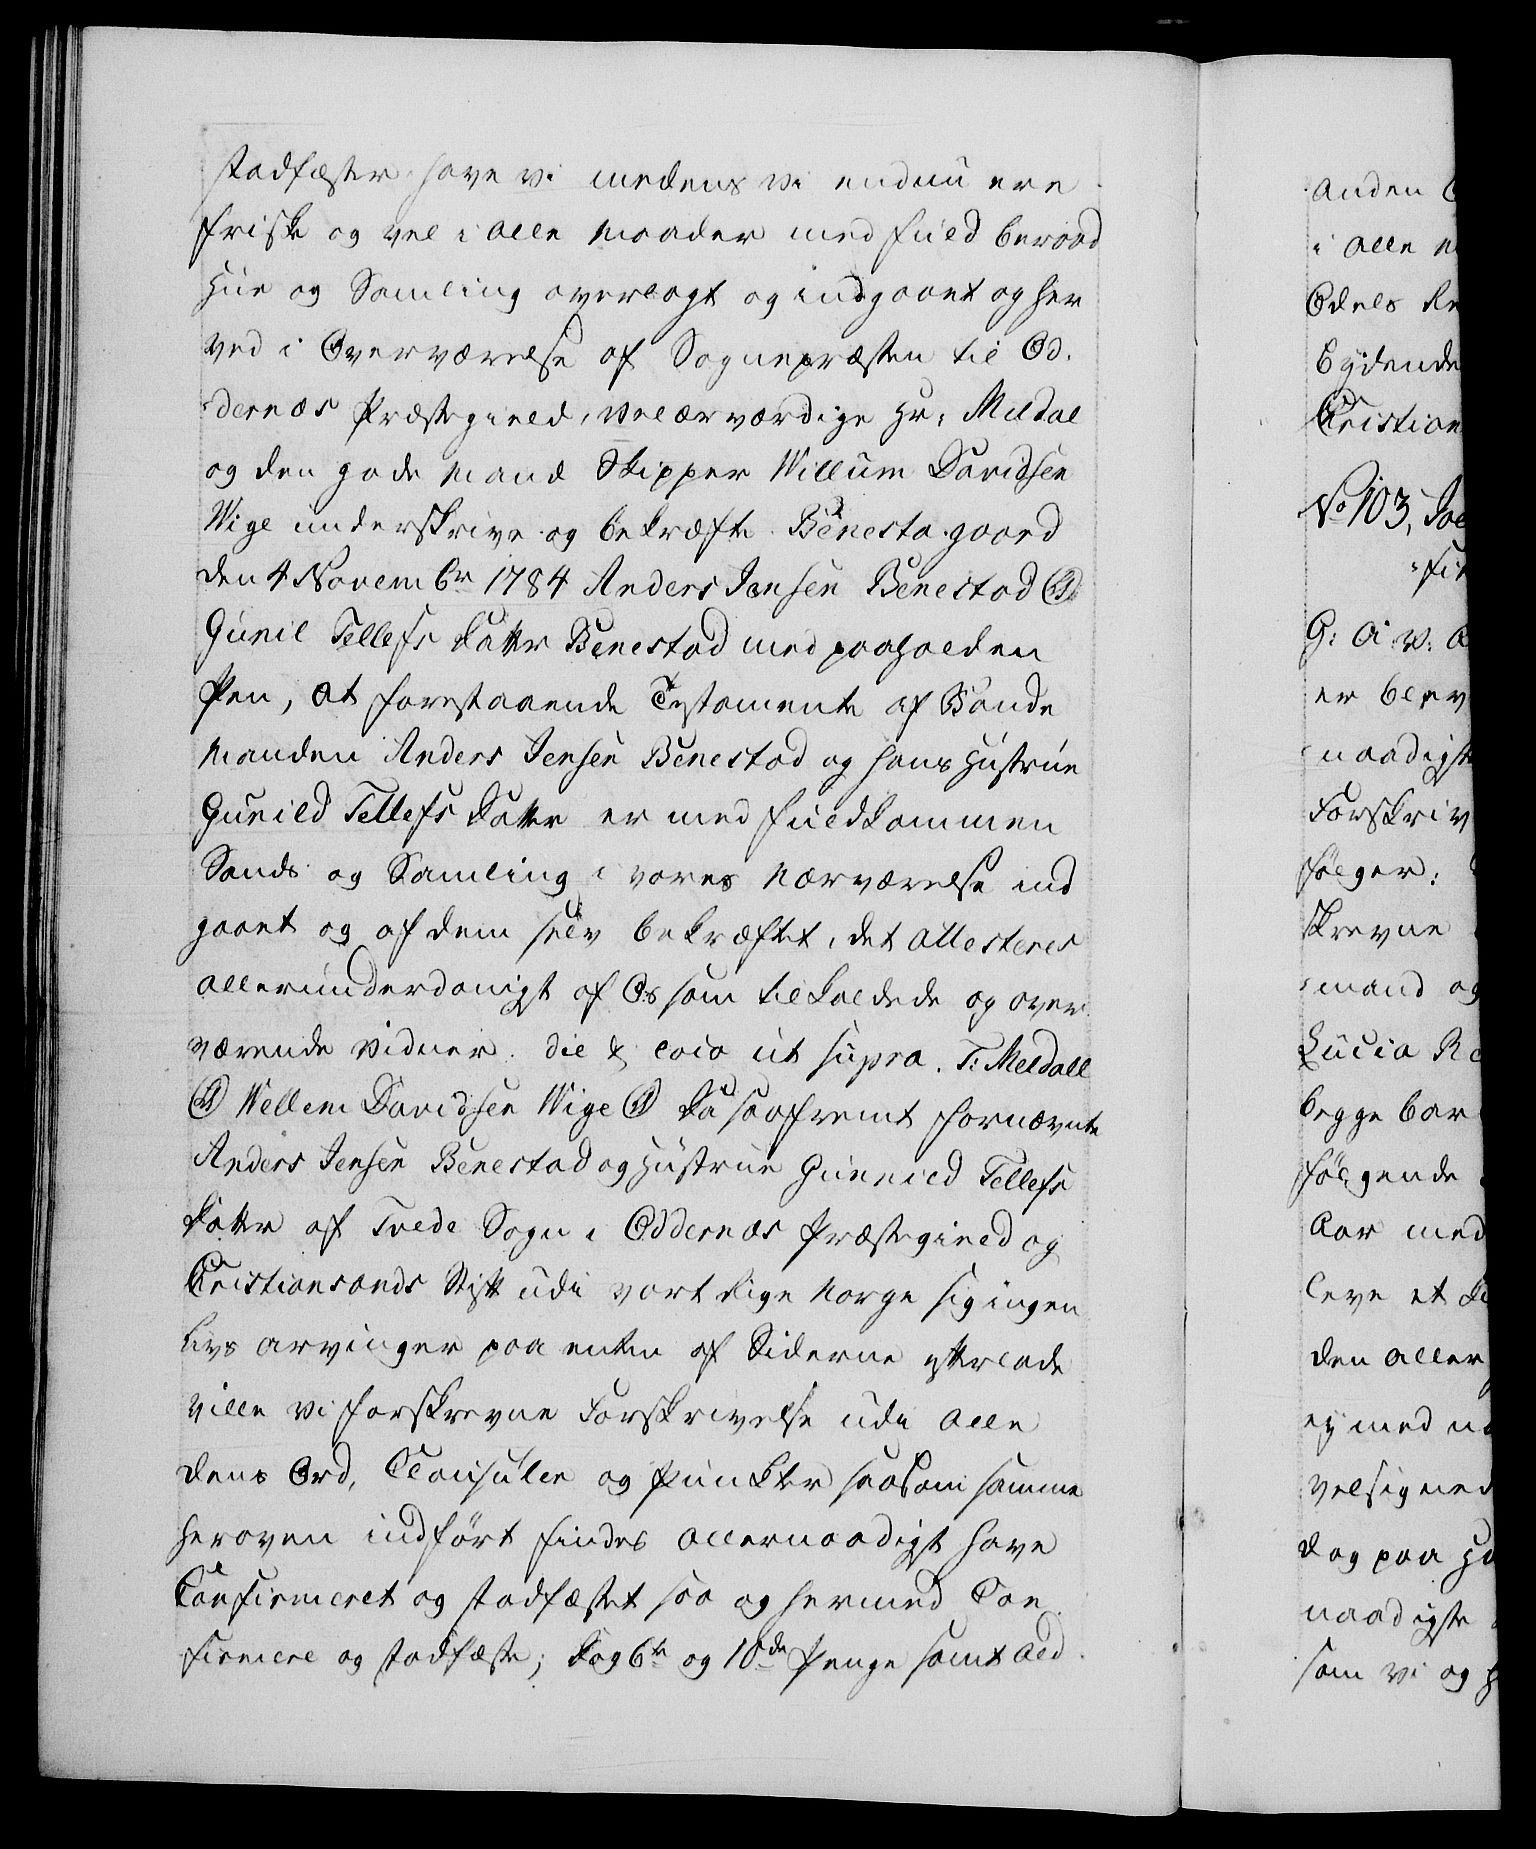 stadfæster have vi medens vi endnu ere
friske og vel i alle Maader med fuld beraad
Hue og Samling overlagt og indgaaet og her
ved i Overværelse af Sognepræsten til Od.
dernæs Præstegield, velærværdige Hr: Meldal
og den gode Mand Skipper Willum Davidsen
Wige underskrive og bekræfte Benesta gaard
den 4 Novembr 1784 Anders Jensen Benestad
Gunil Tellefs Datter Benestad med paaholden
Pen, at forestaaende Testamente af Bonde
Manden Anders Jensen Benestad og hans Hustrue
Gunild Tellefs Datter er med fuldkommen
Sands og Samling i vores Nærværelse ind
gaaet og af dem selv bekræftet, det attesteres
allerunderdanigst af Os som tilkaldede og over
værende Vidner. die & loco ut supra. T: Meldall
Wellem Davidsen Wige Da saafremt fornævnte
Anders Jensen Benestad og Hustrue Gunnild Tellefs
Datter af Tvede Sogn i Oddernæs Præstegield og
Cristiansands Stift udi vort Rige Norge sig ingen
Livs arvinger paa enten af Siderne efterlade
ville vi forskrevne Forskrivelse udi alle
dens Ord, Clausuler og Puncter saasom samme
heroven indført findes allernaadigst have
Confirmeret og stadfæstet saa og hermed Con
firmere og stadfæste; Dog 6te og 10de Penge samt Ald
anden
i alle
Odels
bydende
Cristian
No 103,
G: A: v:
er blev
naadigst
Forskriv
følger:
skrevne
mand og
Lucia
begge bar
følgende
Aar med
leve et
den aller
ey med
velsigned
dog paa
naadigste
som vi og